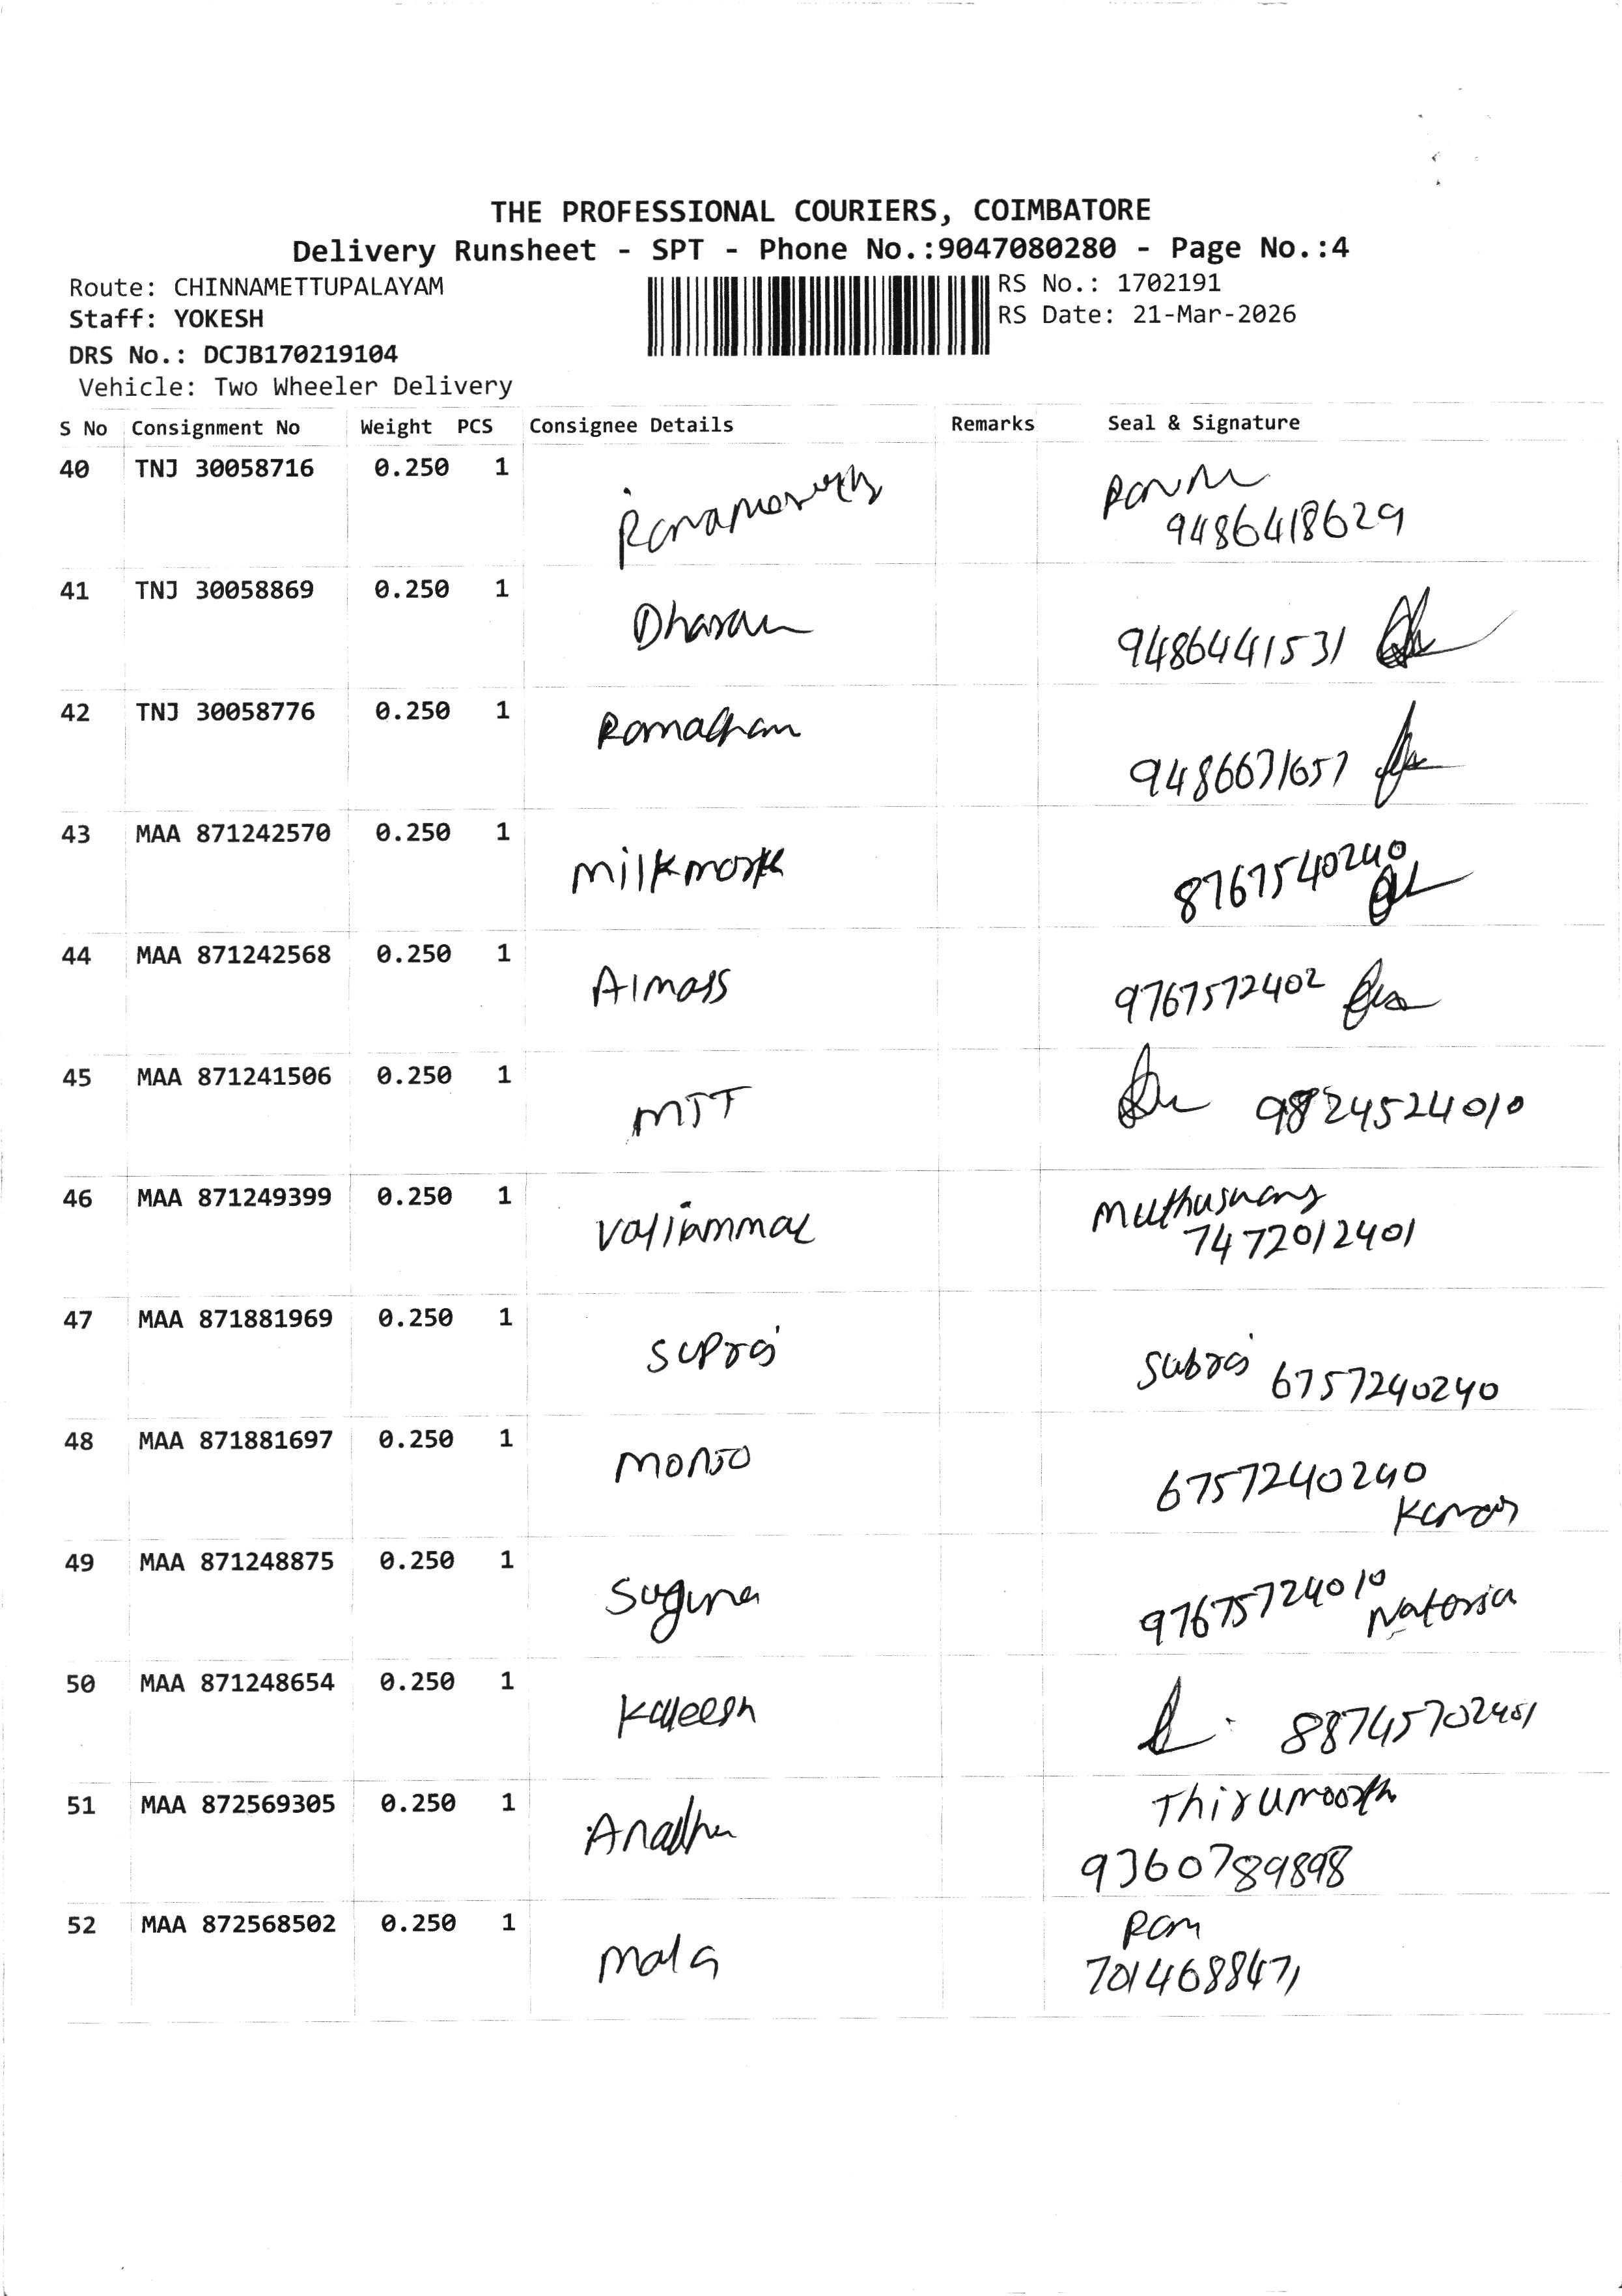 THE PROFESSIONAL COURIERS, COIMBATORE
Delivery Runsheet - SPT - Phone No.:9047080280 - Page No.:4
Route: CHINNAMETTUPALAYAM
RS No.: 1702191
Staff: YOKESH
RS Date: 21-Mar-2026
DRS No.: DCJB170219104
Vehicle: Two Wheeler Delivery
S No Consignment No Weight PCS Consignee Details Remarks Seal & Signature
40 TNJ 30058716 0.250 1
9486418629
41 TNJ 30058869 0.250 1 Dharan
9486441531
42 TNJ 30058776 0.250 1
9486671657
43 MAA 871242570 0.250 1 milkmork
8767540240
44 MAA 871242568 0.250 1 Almass
9767572402
45 MAA 871241506 0.250 1 MTT
9824524010
46 MAA 871249399 0.250 1 valiammal Muthusamy
7472012401
47 MAA 871881969 0.250 1 supraj
Subraj 6757240240
48 MAA 871881697 0.250 1
6757240240
49 MAA 871248875 0.250 1 Suguna
97675724010
50 MAA 871248654 0.250 1
51 MAA 872569305 0.250 1 Thirumoorth
9360789898
52 MAA 872568502 0.250 1 mala Ram
7014688471